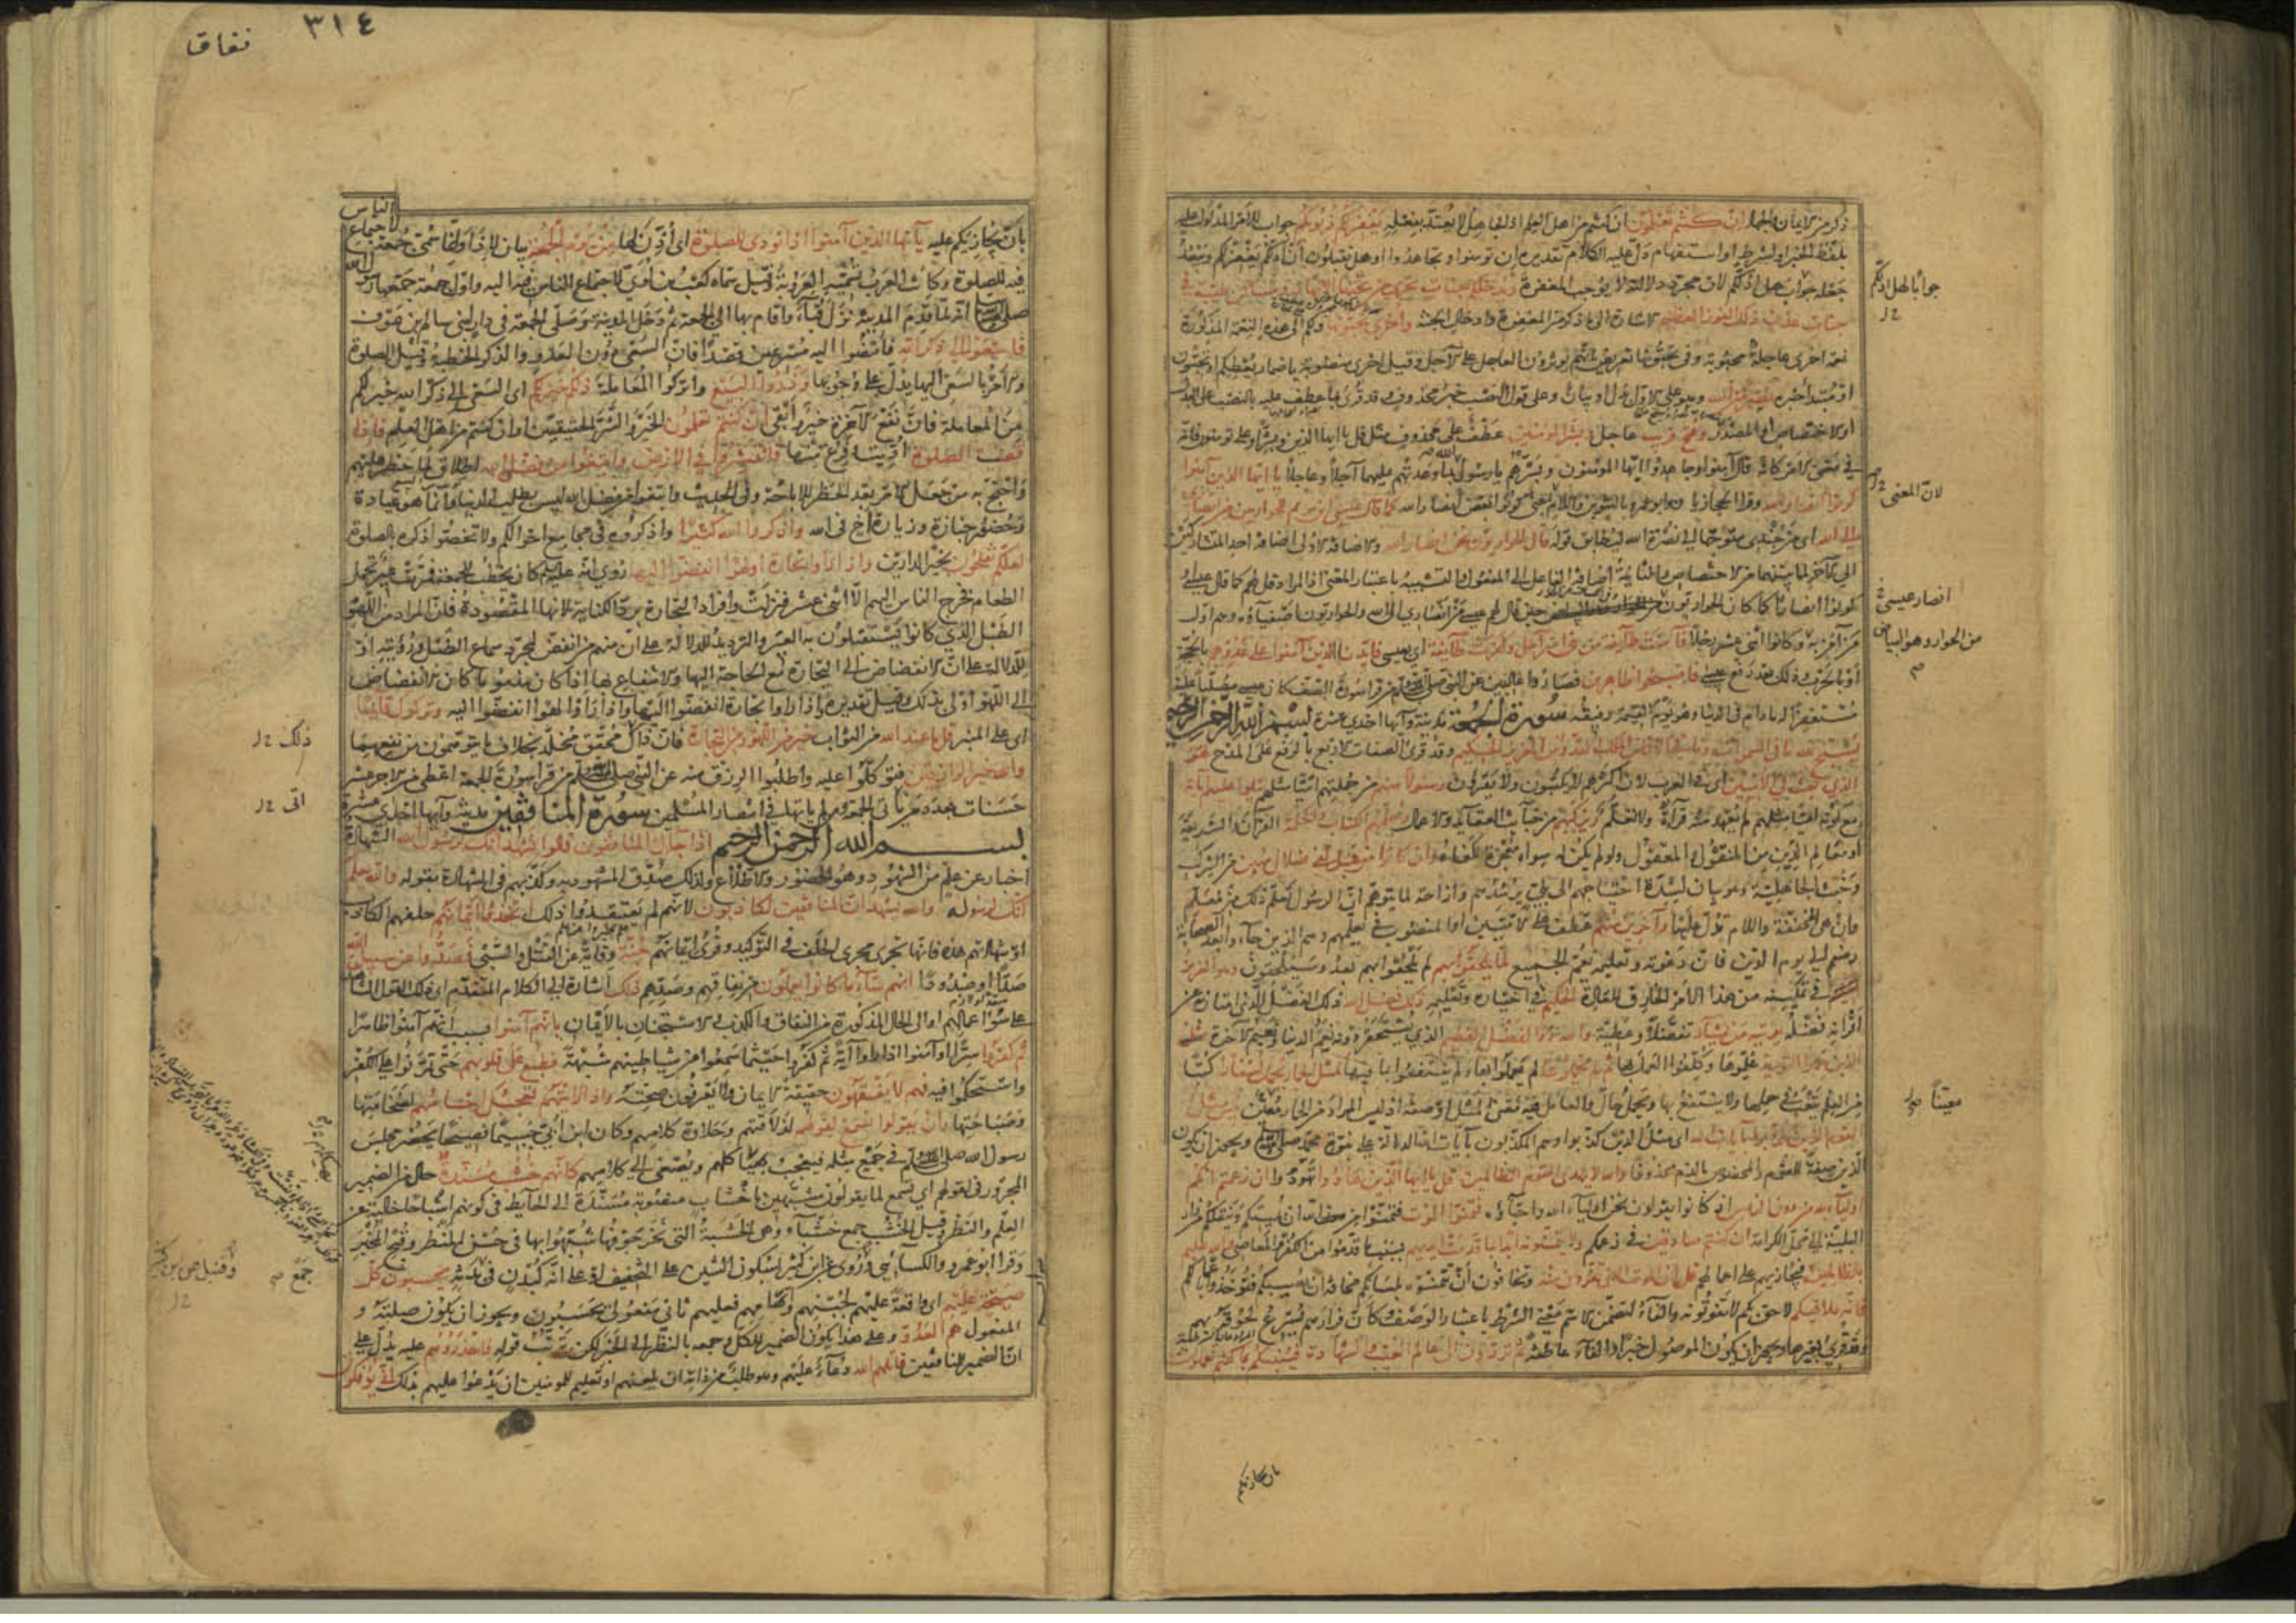 ذكر من الايمان والجهاد ان كنتم تعلمون ان كنتم من اهل العلم اذ الجاهل لا يعتد بفعله يغفر لكم ذنوبكم جواب للامر المدلول عليه
بلفظ الخبر او لشرط او استفهام دل عليه الكلام تقديره ان تؤمنوا وتجاهدوا او هل تقبلون ان ادلكم يغفر لكم ويبعد
جعله جوابا هل ادلكم لان مجرد دلالته لا يوجب المغفرة ويدخلكم جنات تجري من تحتها الانهار ومساكن طيبة في
جنات عدن ذلك الفوز العظيم الاشارة الى ما ذكر من المغفرة وادخال الجنة واخرى تحبونها ولكم الى هذه النعمة المذكورة
نعمة اخرى عاجلة محبوبة وفي تحبونها تعريض بانهم يؤثرون العاجل على الآجل وقيل اخرى منصوبة باضمار يعطكم او تحبون
او مبتدا خبره نصر من الله وهو على الاول بدل او بيان وعلى قول النصب خبر محذوف وقد قرئ بما عطف عليه بالنصب على البدل
او الاختصاص او المصدر وفتح قريب عاجل وبشر المؤمنين عطف على محذوف مثل قل يا ايها الذين وبشر او على تؤمنون فانه
في معنى الامر كانه قال آمنوا وجاهدوا ايها المؤمنون وبشرهم يا رسول الله بما وعدتهم عليهما آجلا وعاجلا يا ايها الذين آمنوا
كونوا انصار الله وقرا الحجازيان وابو عمرو بالتنوين واللام لان المعنى كونوا بعض انصار الله كما قال عيسى ابن مريم للحواريين من انصاري
الى الله اي من جندي متوجها الى نصرة الله ليطابق قوله قال الحواريون نحن انصار الله والاضافة الاولى اضافة احد المتشاركين
الى الآخر لما بينهما من الاختصاص والثانية اضافة الفاعل الى المفعول والتشبيه باعتبار المعنى اذ المراد قل لهم كما قال عيسى
كونوا انصارا كما كان الحواريون حين قال لهم عيسى من انصاري الى الله والحواريون اصفياؤه وهم اول
من آمن به وكانوا اثني عشر رجلا فآمنت طائفة من بني اسرائيل وكفرت طائفة اي بعيسى فايدنا الذين آمنوا على عدوهم بالحجة
او بالحرب وذلك بعد رفع عيسى فاصبحوا ظاهرين فصاروا غالبين عن النبي صلى الله عليه وسلم من قرا سورة الصف كان عيسى مصليا عليه
مستغفرا له ما دام في الدنيا وهو يوم القيمة رفيقه سورة الجمعة مدنية وآيها احدى عشرة بسم الله الرحمن الرحيم
يسبح لله ما في السموات وما في الارض الملك القدوس العزيز الحكيم وقد قرئ الصفات الاربع بالرفع على المدح هو
الذي بعث في الاميين اي في العرب لان اكثرهم لا يكتبون ولا يقرؤون رسولا منهم من جملتهم اميا مثلهم يتلوا عليهم آياته
مع كونه اميا مثلهم لم يعهد منه قرآءة ولا تعلم ويزكيهم من خبآئث العقآئد والاعمال ويعلمهم الكتاب والحكمة القرآن والشريعة
او معالم الدين من المنقول والمعقول ولو لم يكن له سواه معجزة لكفاه وان كانوا من قبل لفي ضلال مبين من الشرك
وخبث الجاهلية وهو بيان لشدة احتياجهم الى نبي يرشدهم وازاحة لما يتوهم ان الرسول تعلم ذلك من معلم
وان هي المخففة واللام تدل عليها وآخرين منهم عطف على الاميين او المنصوب في يعلمهم وهم الذين جآءوا بعد الصحابة
منهم الى يوم الدين فان دعوته وتعليمه تعم الجميع لما يلحقوا بهم لم يلحقوا بهم بعد وسيلحقون وهو العزيز
في تمكينه من هذا الامر الخارق للعادة الحكيم في اختياره وتعليمه ذلك فضل الله ذلك الفضل الذي امتاز به عن
اقرانه فضله يؤتيه من يشآء تفضلا وعطية والله ذو الفضل العظيم الذي يستحقر دونه نعم الدنيا ونعيم الآخرة مثل
الذين حملوا التورية علموها وكلفوا العمل بها ثم لم يحملوها لم يعملوا بها ولم ينتفعوا بما فيها كمثل الحمار يحمل اسفارا كتبا
من العلم يتعب في حملها ولا ينتفع بها ويحمل حال والعامل فيه معنى المثل او صفة اذ ليس المراد من الحمار معينا بئس مثل
القوم الذين كذبوا بآيات الله اي مثل الذين كذبوا وهم المكذبون بآيات الله الدالة على نبوة محمد صلى الله عليه وسلم ويجوز ان يكون
الذين صفة للقوم والمخصوص بالذم محذوفا والله لا يهدي القوم الظالمين قل يا ايها الذين هادوا تهودوا ان زعمتم انكم
اوليآء لله من دون الناس اذ كانوا يقولون نحن اوليآء الله واحبآؤه فتمنوا الموت فتمنوا من الله ان يميتكم وينقلكم من دار
البلية الى محل الكرامة ان كنتم صادقين في زعمكم ولا يتمنونه ابدا بما قدمت ايديهم بسبب ما قدموا من الكفر والمعاصي والله عليم
بالظالمين فيجازيهم على اعمالهم قل ان الموت الذي تفرون منه وتخافون ان تتمنوه بلسانكم مخافة ان يصيبكم فتؤخذوا باعمالكم
فانه ملاقيكم لاحق بكم لا تفوتونه والفآء لتضمن الاسم معنى الشرط باعتبار الوصف وكان فرارهم يسرع لحوقه بهم
وقد قرئ بغير فآء ويجوز ان يكون الموصول خبرا والفآء عاطفة ثم تردون الى عالم الغيب والشهادة فينبئكم بما كنتم تعملون
جوابا لهل ادلكم
لان المعنى
انصار عيسى
من الحوار وهو البياض
معينا
بان يجازيكم
٣١٤
نفاق
بان يجازيكم عليه يا ايها الذين آمنوا اذا نودي للصلوة اي اذن لها من يوم الجمعة بيان لاذا وانما سمي جمعة لاجتماع الناس
فيه للصلوة وكانت العرب تسميه العروبة وقيل سماه كعب بن لؤي لاجتماع الناس فيه اليه واول جمعة جمعها رسول الله
صلى الله عليه وسلم انه لما قدم المدينة نزل قبآء واقام بها الى الجمعة ثم دخل المدينة وصلى الجمعة في دار لبني سالم بن عوف
فاسعوا الى ذكر الله فامضوا اليه مسرعين قصدا فان السعي دون العدو والذكر الخطبة وقيل الصلوة
والامر بالسعي اليها يدل على وجوبها وذروا البيع واتركوا المعاملة ذلكم خير لكم اي السعي الى ذكر الله خير لكم
من المعاملة فان نفع الآخرة خير وابقى ان كنتم تعلمون الخير والشر الحقيقيين او ان كنتم من اهل العلم فاذا
قضيت الصلوة اديت وفرغ منها فانتشروا في الارض وابتغوا من فضل الله اطلاق لما حظر عليهم
واحتج به من جعل الامر بعد الحظر للاباحة وفي الحديث وابتغوا من فضل الله ليس بطلب الدنيا وانما هو عيادة
وحضور جنازة وزيارة اخ في الله واذكروا الله كثيرا واذكروه في مجامع احوالكم ولا تخصوا ذكره بالصلوة
لعلكم تفلحون بخير الدارين واذا راوا تجارة او لهوا انفضوا اليها روي انه عليه السلم كان يخطب للجمعة فمرت عير تحمل
الطعام فخرج الناس اليهم الا اثني عشر فنزلت وافراد التجارة برد الكناية لانها المقصودة فان المراد من اللهو
الطبل الذي كانوا يستقبلون به العير والترديد للدلالة على ان منهم من انفض لمجرد سماع الطبل ورؤيته او
للدلالة على ان الانفضاض الى التجارة مع الحاجة اليها والانتفاع بها اذا كان مذموما كان الانفضاض
الى اللهو اولى بذلك وقيل تقديره واذا راوا تجارة انفضوا اليها واذا راوا لهوا انفضوا اليه وتركوك قائما
اي على المنبر قل ما عند الله من الثواب خير من اللهو ومن التجارة فان ذلك محقق مخلد بخلاف ما تتوهمون من نفعهما
والله خير الرازقين فتوكلوا عليه واطلبوا الرزق منه عن النبي صلى الله عليه وسلم من قرا سورة الجمعة اعطي من الاجر عشر
حسنات بعدد من ياتي الجمعة ومن لم ياتها في امصار المسلمين سورة المنافقين مدنية وآيها احدى عشرة
بسم الله الرحمن الرحيم اذا جآءك المنافقون قالوا نشهد انك لرسول الله الشهادة
اخبار عن علم من الشهود وهو الحضور والاطلاع ولذلك صدق المشهود به وكذبهم في الشهادة بقوله والله يعلم
انك لرسوله والله يشهد ان المنافقين لكاذبون لانهم لم يعتقدوا ذلك اتخذوا ايمانهم حلفهم الكاذب
او شهادتهم هذه فانها تجري مجرى الحلف في التوكيد وقرئ ايمانهم جنة وقاية عن القتل والسبي فصدوا عن سبيل الله
صدا او صدودا انهم سآء ما كانوا يعملون من نفاقهم وصدهم ذلك اشارة الى الكلام المتقدم اي ذلك القول الشاهد
على سوء اعمالهم او الى الحال المذكورة من النفاق والكذب والاستجنان بالايمان بانهم آمنوا بسبب انهم آمنوا ظاهرا
ثم كفروا سرا او آمنوا اذا راوا آية ثم كفروا حيثما سمعوا من شياطينهم شبهة فطبع على قلوبهم حتى تمرنوا على الكفر
واستحكموا فيه فهم لا يفقهون حقيقة الايمان ولا يعرفون صحته واذا رايتهم تعجبك اجسامهم لضخامتها
وصباحتها وان يقولوا تسمع لقولهم لذلاقتهم وحلاوة كلامهم وكان ابن ابي جسيما فصيحا يحضر مجلس
رسول الله صلى الله عليه وسلم في جمع مثله فيعجب بهياكلهم ويصغى الى كلامهم كانهم خشب مسندة حال من الضمير
المجرور في لقولهم اي تسمع لما يقولون مشبهين باخشاب منصوبة مسندة الى الحآئط في كونهم اشباحا خالية عن
العلم والنظر وقيل الخشب جمع خشبآء وهي الخشبة التي نخر جوفها شبهوا بها في حسن المنظر وقبح المخبر
وقرا ابو عمرو والكسآئي وروي عن ابن كثير بسكون الشين على التخفيف او على انه كبدن في بدنة يحسبون كل
صيحة عليهم اي واقعة عليهم لجبنهم واتهامهم فعليهم ثاني مفعولي يحسبون ويجوز ان يكون صلته و
المفعول هم العدو وعلى هذا يكون الضمير للكل وجمعه بالنظر الى الخبر لكن ترتب قوله فاحذروهم عليه يدل على
ان الضمير للمنافقين قاتلهم الله دعآء عليهم وهو طلب من ذاته ان يلعنهم او تعليم للمؤمنين ان يدعوا عليهم بذلك انى يؤفكون
ذلك
اتى
جمع